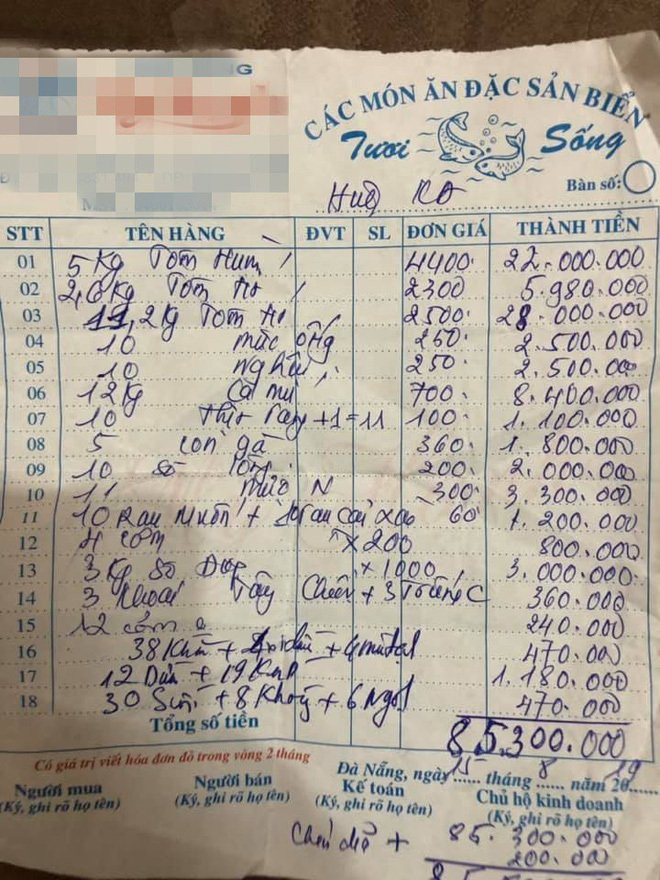 CÁC MÓN ĂN ĐẶC SẢN BIỂN
Tươi Sống
Bàn số:
STT TÊN HÀNG ĐVT SL ĐƠN GIÁ THÀNH TIỀN
01 5 Kg Tôm Hùm 4400 22.000.000
02 2,6 Kg Tôm 2300 5.980.000
03 11,2 Kg Tôm 2500 28.000.000
04 10 mực ống 250 2.500.000
05 10 nghêu 250 2.500.000
06 12 Kg Cá mú 700 8.400.000
07 10 +1=11 100 1.100.000
08 5 con gà 360 1.800.000
09 10 sò lông 200 2.000.000
10 11 mực N 300 3.300.000
11 10 Rau Muốn + 60 1.200.000
12 4 cơm x 200 800.000
13 3 Kg x 1000 3.000.000
14 3 Khoai Tây Chiên + 3 Trứng C 360.000
15 12 240.000
16 38 Khăn + 470.000
17 12 + 19 1.180.000
18 30 + 8 + 6 470.000
Tổng số tiền 85.300.000
Có giá trị viết hóa đơn đỏ trong vòng 2 tháng
Đà Nẵng, ngày 15 tháng 8 năm 2019
Người mua Người bán Kế toán Chủ hộ kinh doanh
(Ký, ghi rõ họ tên) (Ký, ghi rõ họ tên) (Ký, ghi rõ họ tên) (Ký, ghi rõ họ tên)
+ 85.300.000
200.000